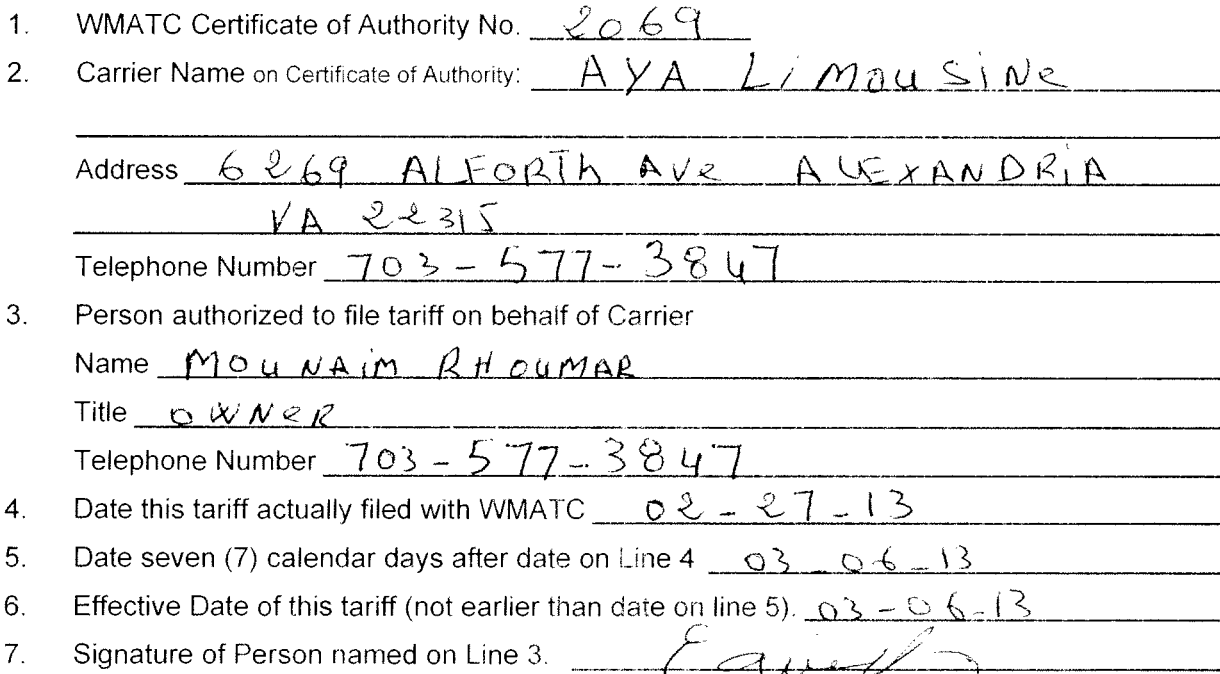 1. WMATC Certificate of Authority No. 2069
2. Carrier Name on Certificate of Authority: AYA LiMouSiNe
Address 6269 ALFORTh AVe ALEXANDRiA
VA 22315
Telephone Number 703-577-3847
3. Person authorized to file tariff on behalf of Carrier
Name MOuNAiM RHOuMAR
Title OWNeR
Telephone Number 703-577-3847
4. Date this tariff actually filed with WMATC 02-27-13
5. Date seven (7) calendar days after date on Line 4 03-06-13
6. Effective Date of this tariff (not earlier than date on line 5). 03-06-13
7. Signature of Person named on Line 3.